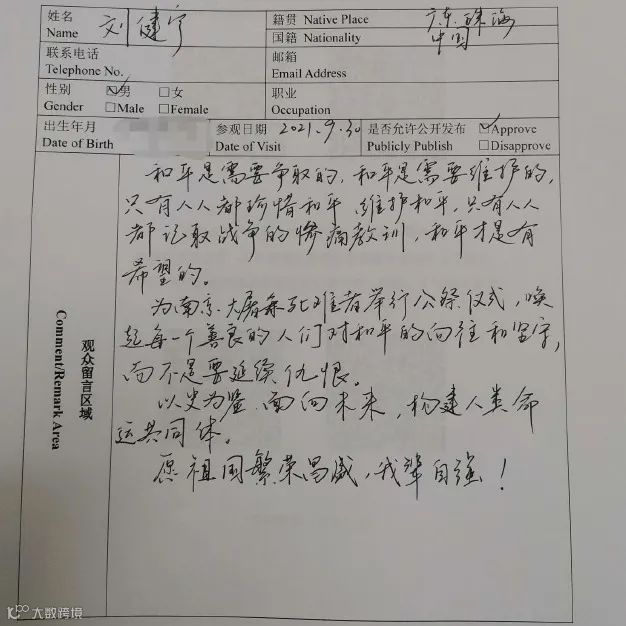 姓名 刘健宁 籍贯 Native Place 广东珠海
Name 国籍 Nationality 中国
联系电话 邮箱
Telephone No. Email Address
性别 ☑男 □女 职业
Gender □Male □Female Occupation
出生年月 参观日期 2021.9.30 是否允许公开发布 ☑Approve
Date of Birth Date of Visit Publicly Publish □Disapprove
观众留言区域
Comment/Remark Area
和平是需要争取的,和平是需要维护的,
只有人人都珍惜和平、维护和平,只有人人
都记取战争的惨痛教训,和平才是有
希望的。
为南京大屠杀死难者举行公祭仪式,唤
起每一个善良的人们对和平的向往和坚守,
而不是要延续仇恨。
以史为鉴、面向未来,构建人类命
运共同体。
愿祖国繁荣昌盛,我辈自强!
大数跨境